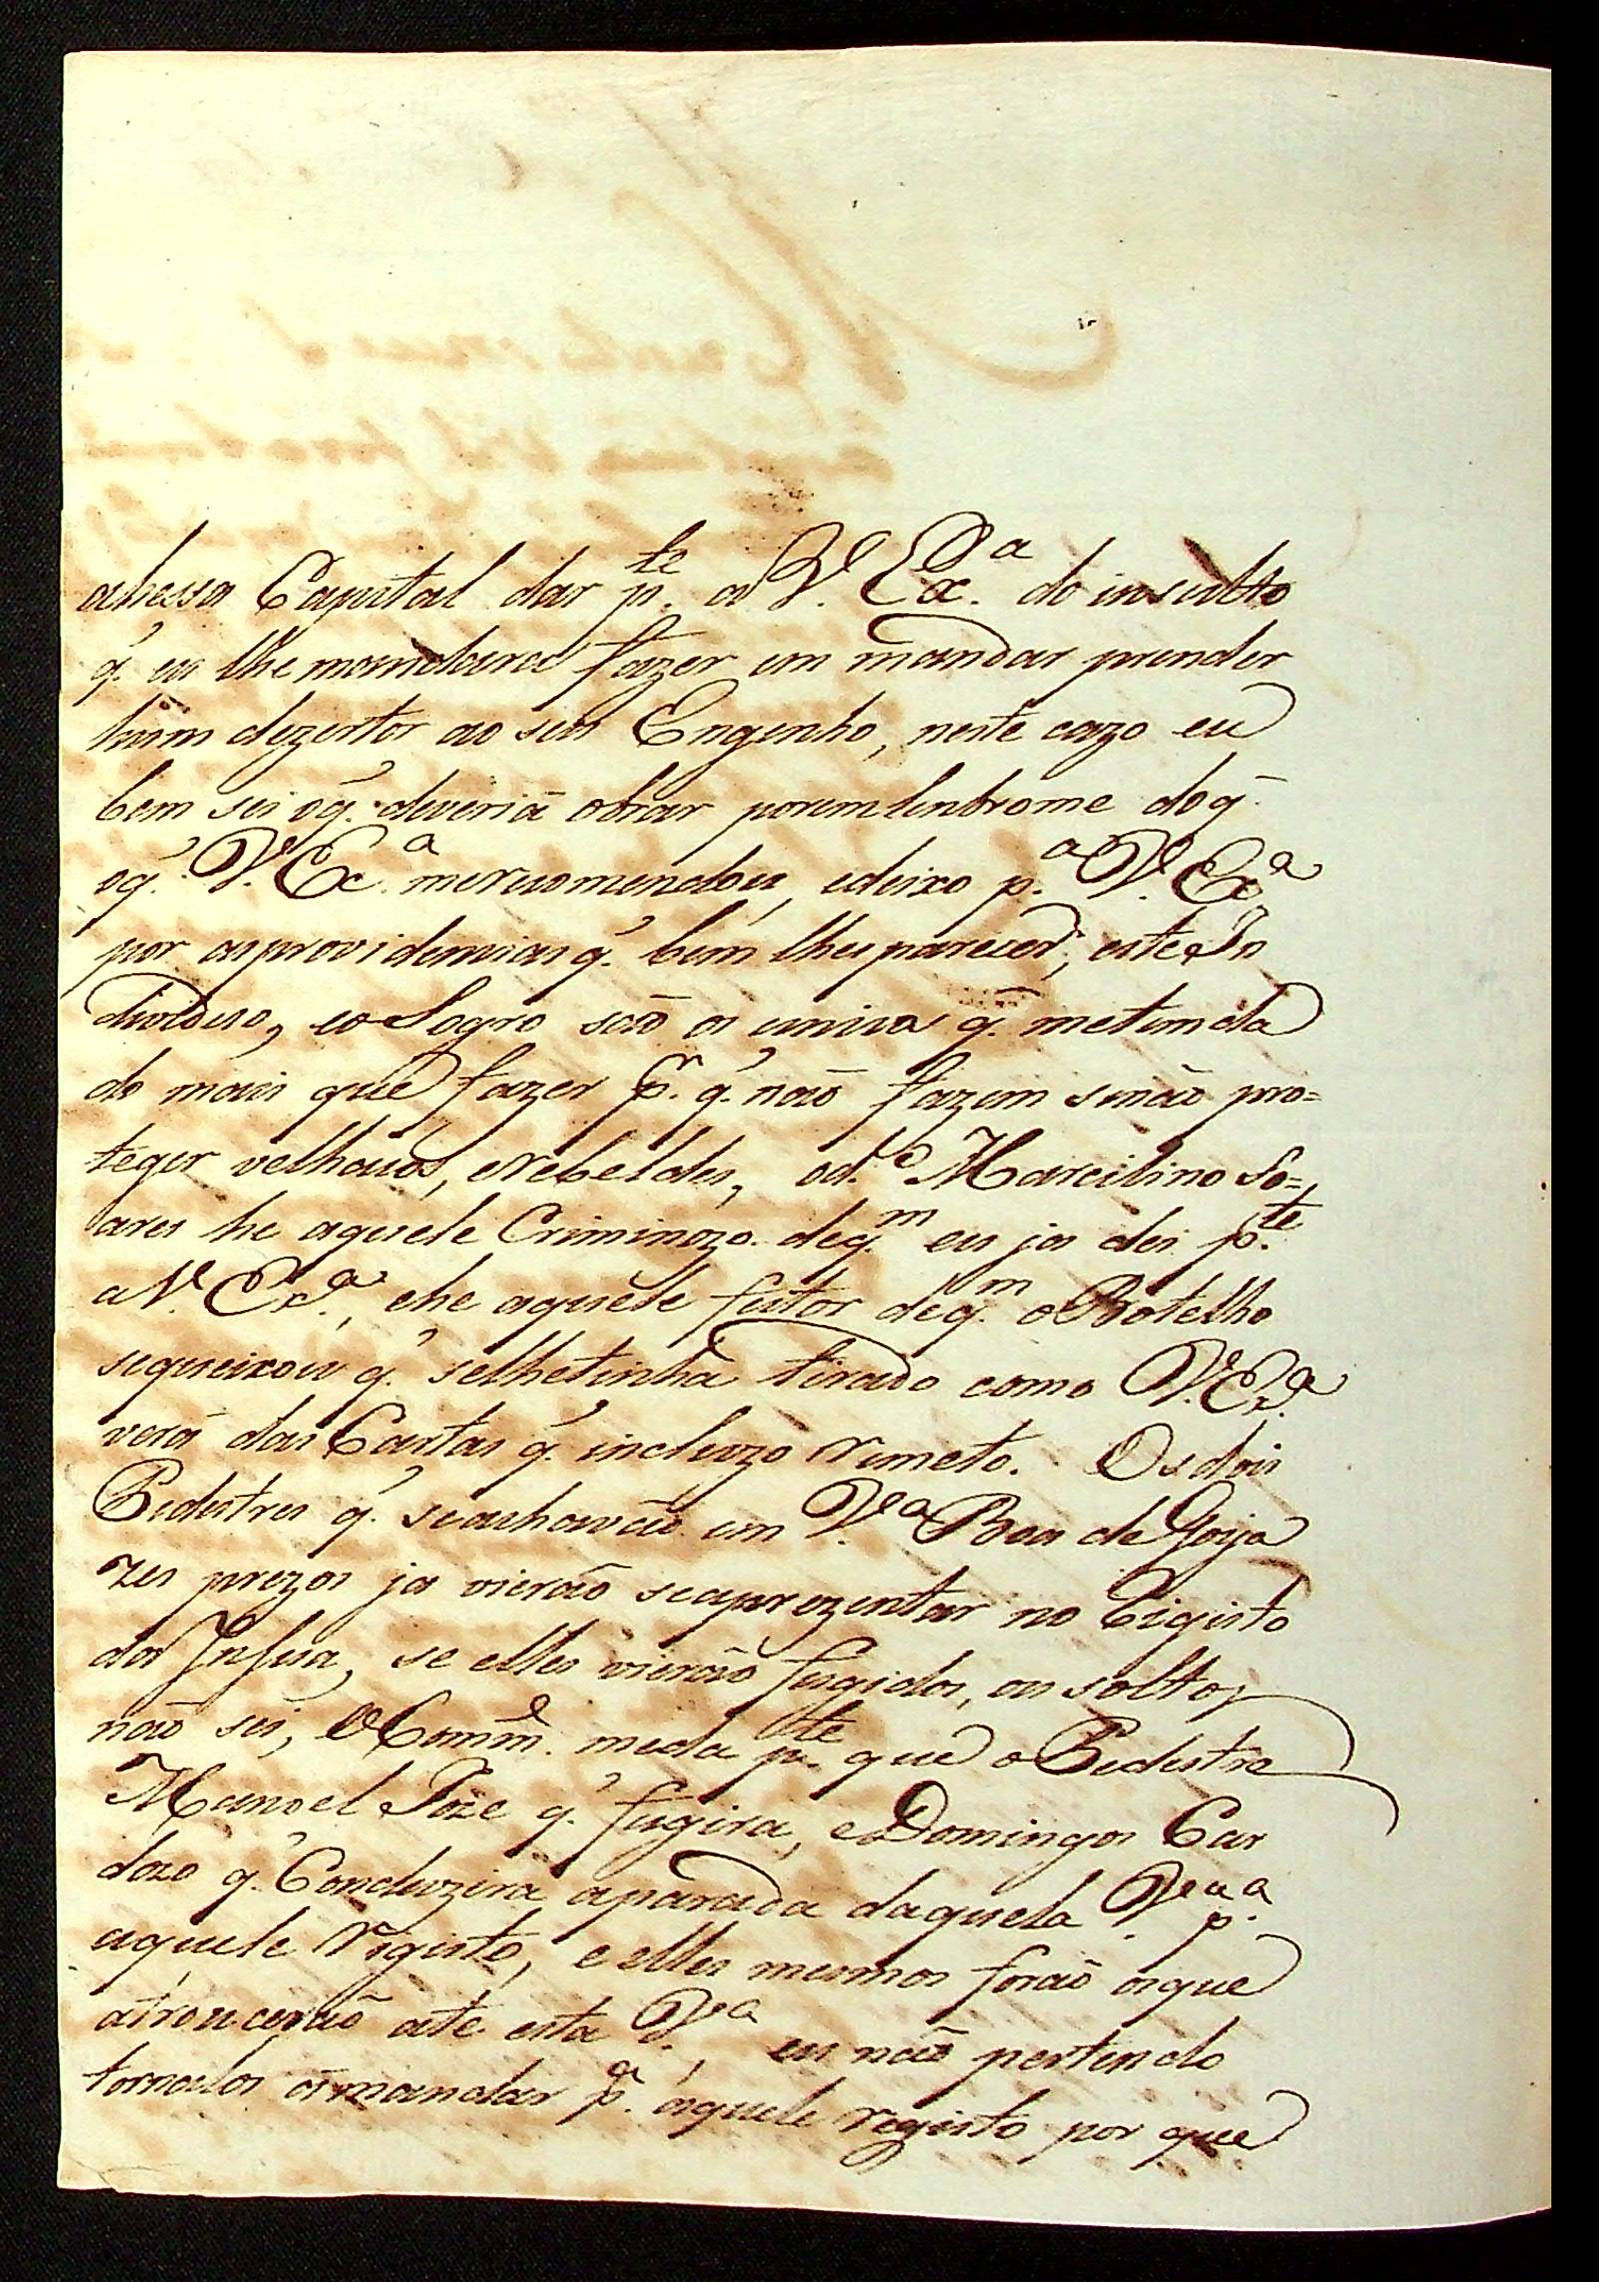 ahessa Capital dar p.te a V. Ex.a do insulto
q. eu lhe mandara fazer em mandar prender
hum dezertor ao seu Engenho, neste cazo eu
bem sei oq. deveria obrar porem lenbrome doq.
oq. V. Ex.a merecomendou, edeixo p.a V. Ex.a
por asprovidencias q. bem lhesparecer, este In
dividuo, eo Sogro saõ os unicos q. metem da
do mais que fazer p.r q. naõ fazem senaõ pro=
teger velhacos, eRebeldes, od.o Marcilino So=
ares he aquele Criminozo deq.m eu ja dei p.te
a V. Ex.a, ehe aquele feitor deq.m o Botelho
sequeixou q. selhetinha tirado como V. Ex.a
verá das Cartas q. incluzo Remeto. Os dois
Pedestres q. seachavaõ em V.a Boa de Goya
zes prezos ja vieraõ seaprezentar no Rigisto
da Insua, se elles vieraõ fugidos, ou soltos
naõ sei, O Comm.e meda p.te que o Pedestre
Manoel Joze q. fugira, e Domingos Car
dozo q. Conduzira aparada daquela V.a p.a
aquele Rigisto, e elles mesmos foraõ osque
atrouceraõ ate esta V.a, eu naõ pertendo
tornalos amandar p.a aquele registo por que